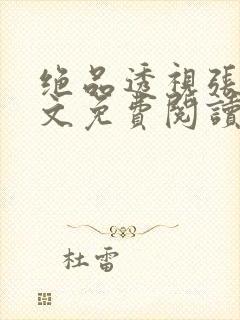 绝品透視張
文免費閱讀
杜雷